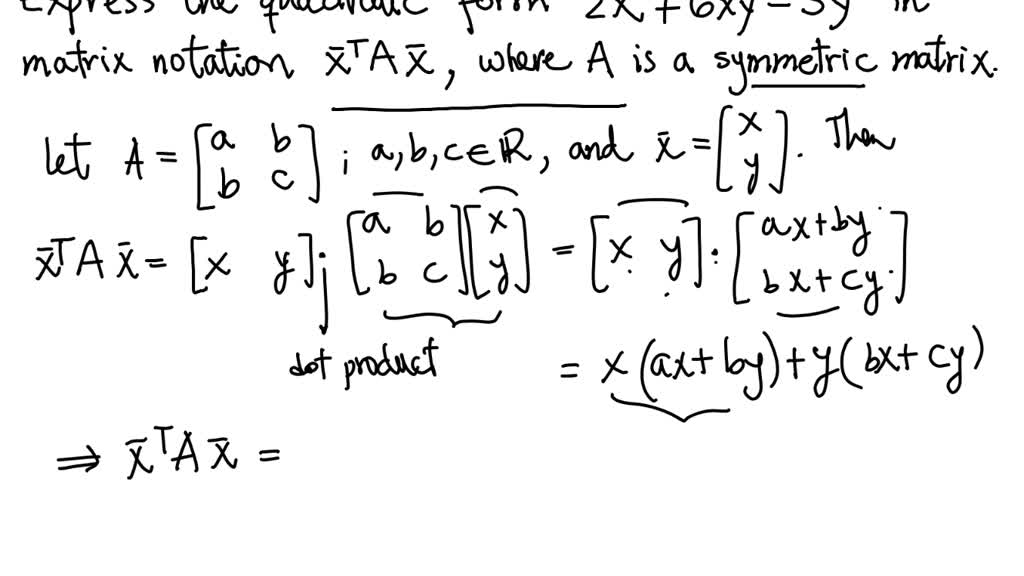 Express the quadratic form 2x + 6xy - 5y in
matrix notation x̄ᵀA x̄, where A is a symmetric matrix.
let A = [a b; b c] ; a,b,c∈ℝ, and x̄ = [x; y]. Then
x̄ᵀA x̄ = [x y]· [a b; b c][x; y] = [x y]· [ax+by; bx+cy]
dot product
= x(ax+by)+y(bx+cy)
⇒ x̄ᵀA x̄ =